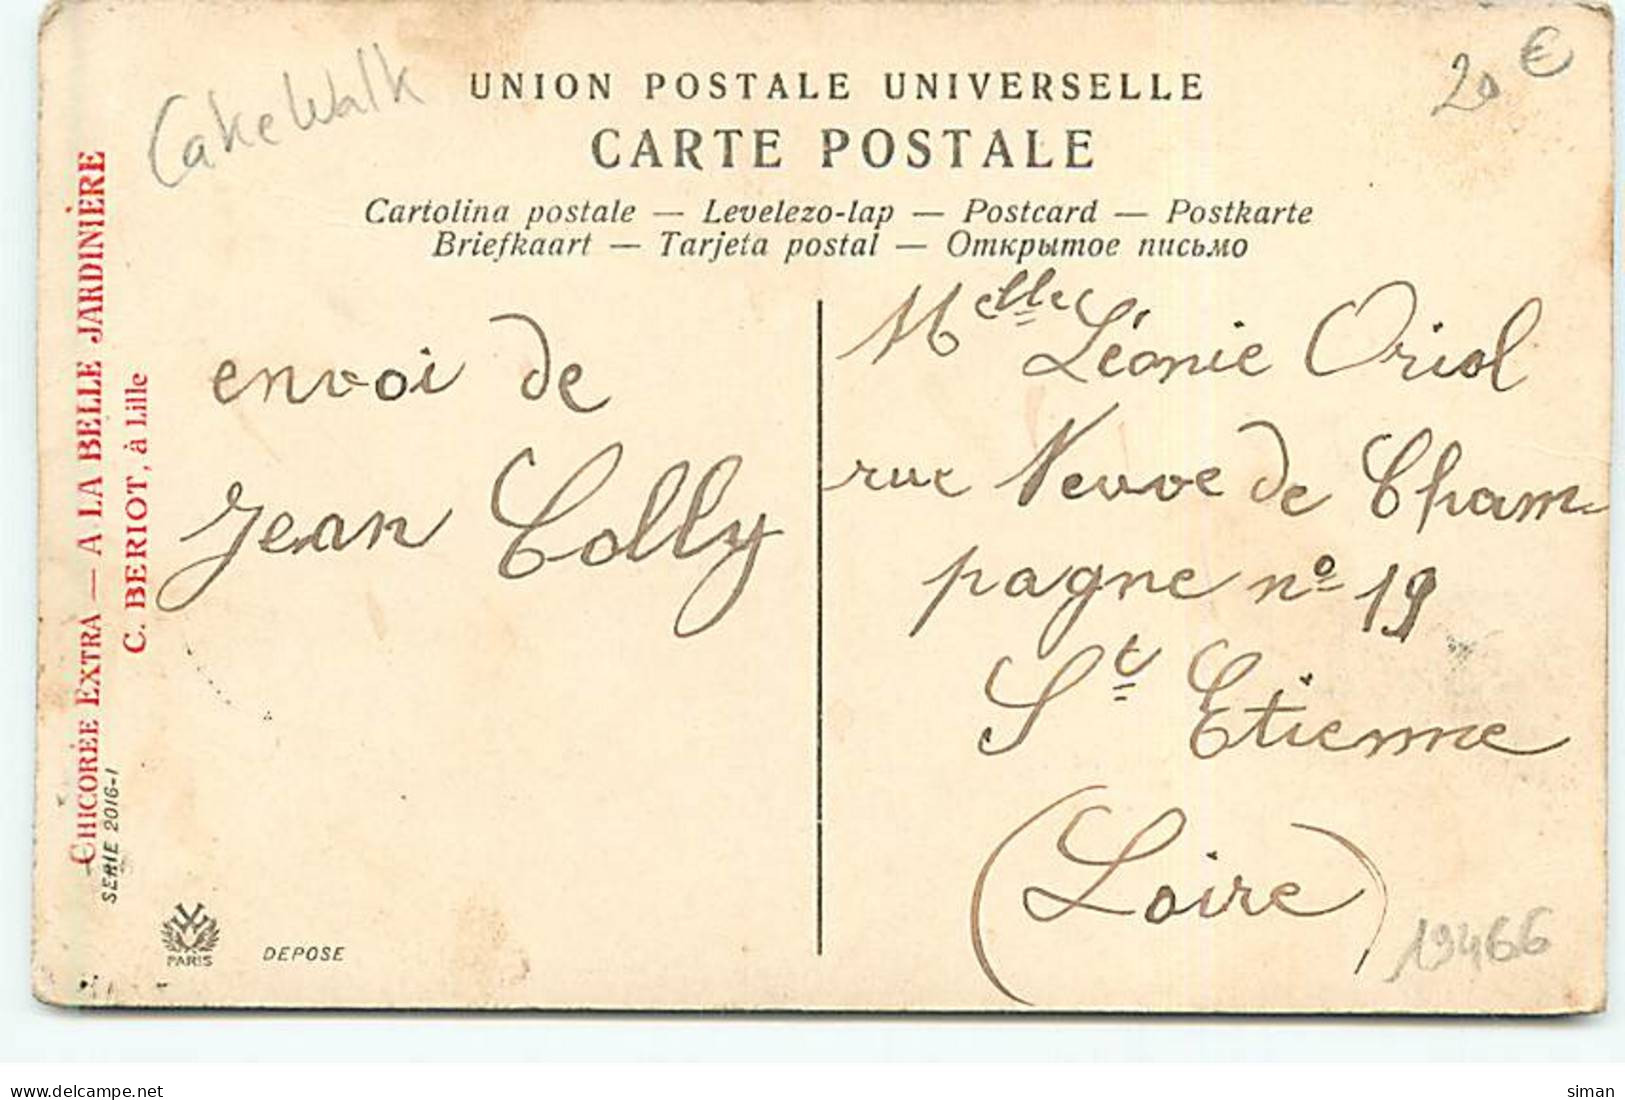 Cake Walk
20 €
UNION POSTALE UNIVERSELLE
CARTE POSTALE
Cartolina postale — Levelezo-lap — Postcard — Postkarte
Briefkaart — Tarjeta postal — Открытое письмо
CHICORÉE EXTRA — A LA BELLE JARDINIÈRE
C. BERIOT, à Lille
SERIE 2016-1
envoi de
Jean Colly
Melle Léonie Oriol
rue Neuve de Cham-
pagne no 19
St Etienne
(Loire)
19466
PARIS
DEPOSE
delcampe.net
siman